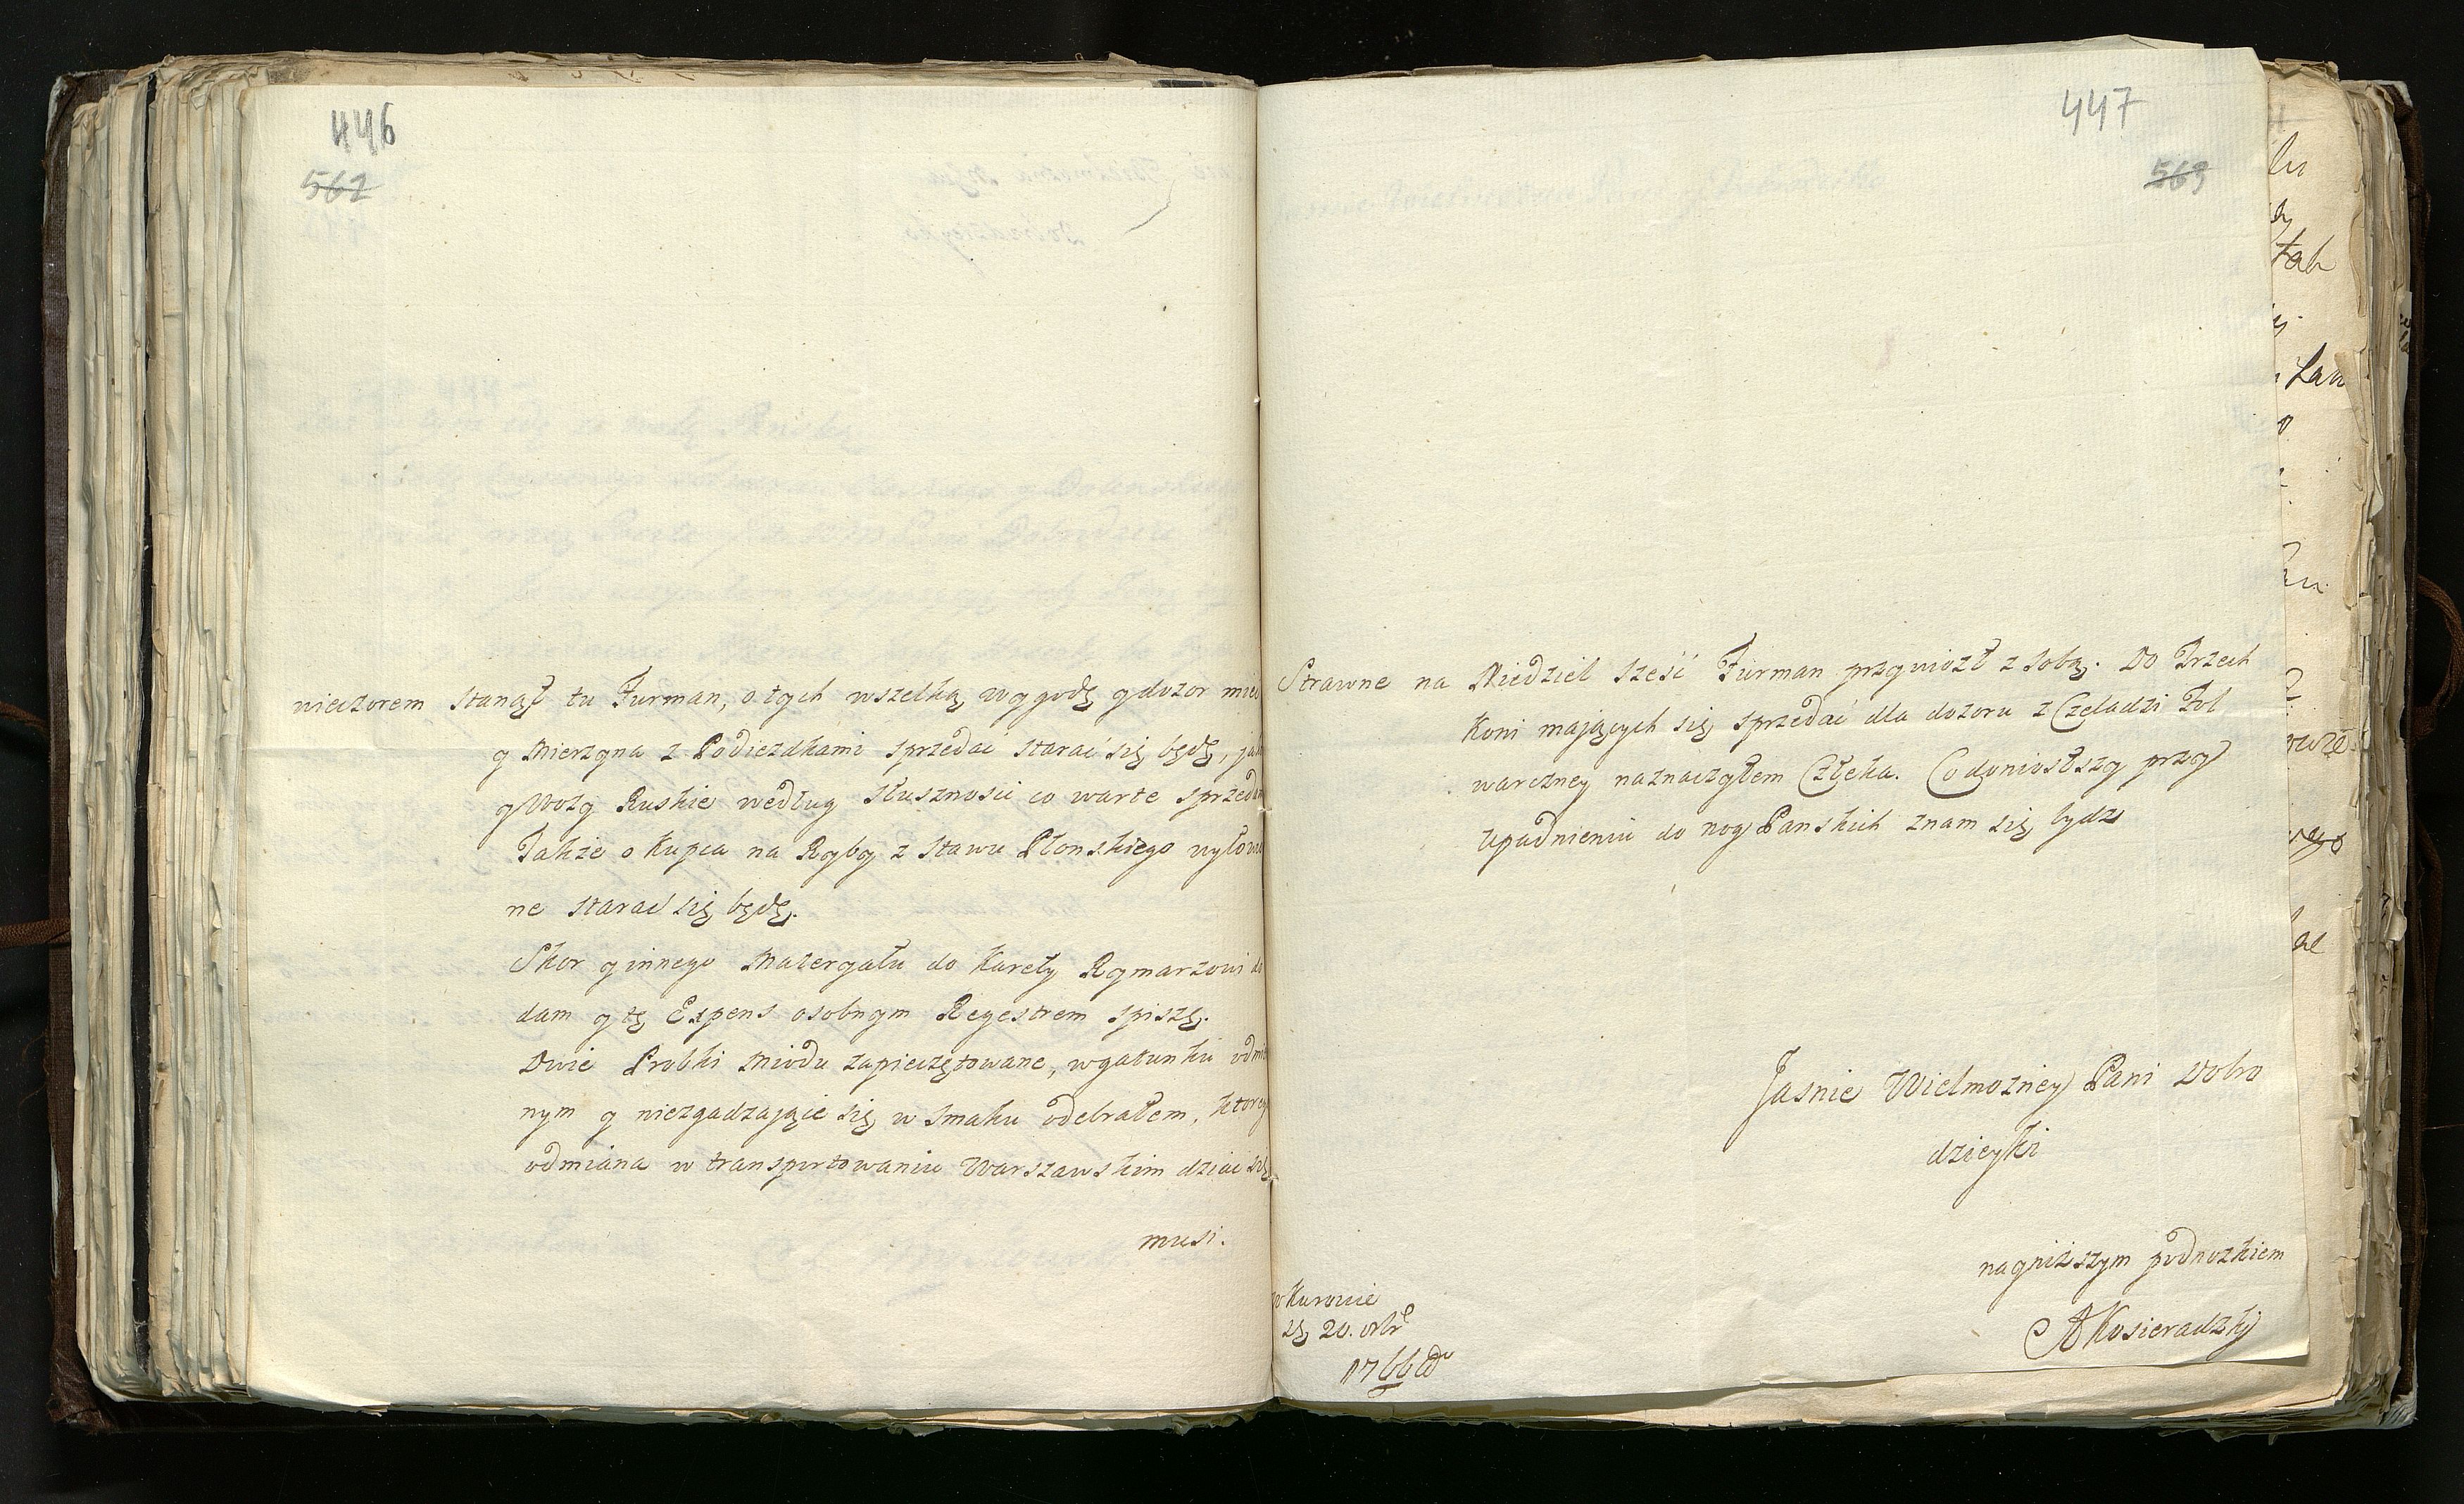 446
562
wieczorem stanął tu Furman, o tych wszelką wygodę y dozor mieć
y Mierzyna z Podiezdkami sprzedać starać się będę, jako
y Wozy Ruskie według słusznosci co warte sprzedam
Takze o Kupca na Ryby z Stawu Płonskiego wyłowio
ne starac się będę.
Skor y innego Materyału do Karety Rymarzowi do
dam y tę Expens osobnym Regestrem spiszę.
Dwie Probki Miodu zapieczętowane, w gatunku odmien
nym y niezgadzaiącie się w smaku odebrałem, ktorey
odmiana w transportowaniu Warszawskim dziac się
musi.
447
563
Strawne na Niedziel sześć Furman przywiozł z sobą. Do Trzech
Koni mających się sprzedać dla dozoru z Czeladzi Fol
warczney naznaczyłem Człeka. Co doniosłszy przy
upadnieniu do nog Panskich znam się bydz
Jasnie Wielmozney Pani Dobro
dzieyki
nayniższym podnozkiem
AKosieradzkj
w Kurowie
dą 20. 8brˢ
1766 Aº